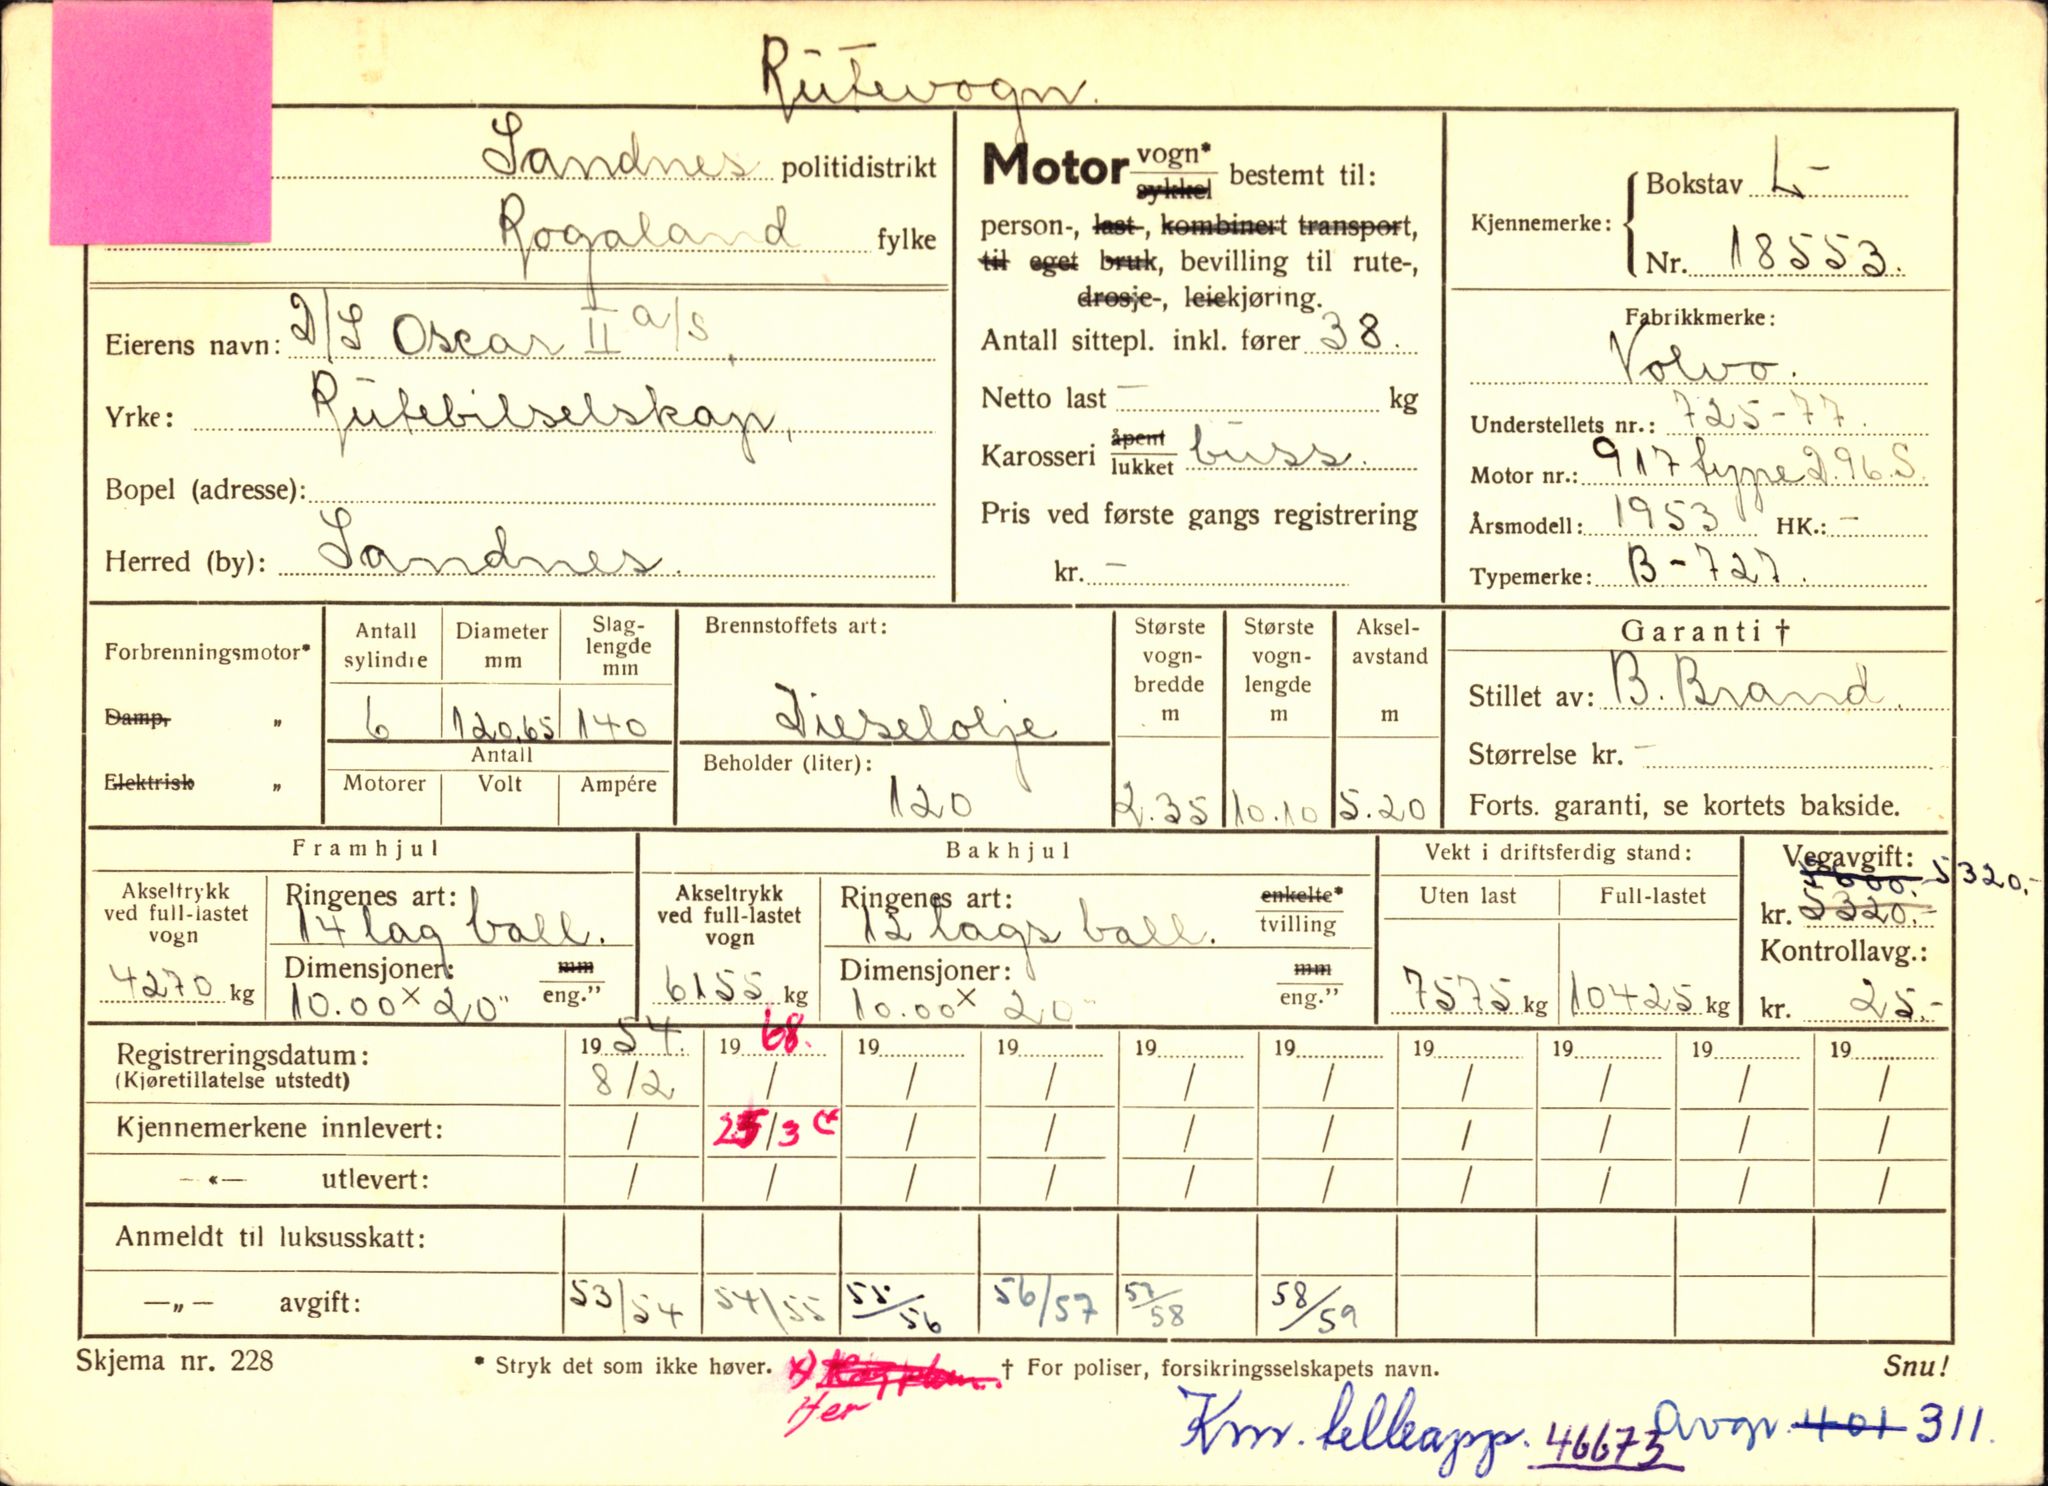 Rutevogn.
Sandnes politidistrikt
Rogaland fylke
Eierens navn: D/S Oscar II a/s,
Yrke: Rutebilselskap,
Bopel (adresse):
Herred (by): Sandnes.
Motor vogn* sykkel bestemt til:
person-, last-, kombinert transport,
til eget bruk, bevilling til rute-,
drosje-, leiekjøring.
Antall sittepl. inkl. fører 38.
Netto last — kg
Karosseri åpent lukket buss.
Pris ved første gangs registrering
kr. —
Kjennemerke: Bokstav L-
Nr. 18553.
Fabrikkmerke:
Volvo.
Understellets nr.: 725-77.
Motor nr.: 917 type D.96.S.
Årsmodell: 1953 HK.: —
Typemerke: B-727.
Forbrenningsmotor*
Damp, „
Elektrisk „
Antall sylindre Diameter mm Slag-lengde mm
6 120.65 140
Antall
Motorer Volt Ampére
Brennstoffets art:
Dieselolje
Beholder (liter):
120
Største vogn-bredde m Største vogn-lengde m Aksel-avstand m
2.35 10.10 5.20
Garanti †
Stillet av: B. Brand.
Størrelse kr. —
Forts. garanti, se kortets bakside.
Framhjul
Akseltrykk ved full-lastet vogn
4270 kg
Ringenes art:
14 lag ball.
Dimensjoner: mm eng.”
10.00 x 20"
Bakhjul
Akseltrykk ved full-lastet vogn
6155 kg
Ringenes art: enkelte* tvilling
12 lags ball.
Dimensjoner: mm eng.”
10.00 x 20"
Vekt i driftsferdig stand:
Uten last Full-lastet
7575 kg 10425 kg
Vegavgift:
5320,-
kr. 5320.-
Kontrollavg.:
kr. 25.-
Registreringsdatum: 1954. 1968. 19 19 19 19 19 19 19 19
(Kjøretillatelse utstedt) 8/2 / / / / / / / / /
Kjennemerkene innlevert: / 25/3 / / / / / / / /
—«— utlevert: / / / / / / / / / /
Anmeldt til luksusskatt:
—„— avgift: 53/54 54/55 55/56 56/57 57/58 58/59
Skjema nr. 228 * Stryk det som ikke høver. x) † For poliser, forsikringsselskapets navn. Snu!
Her
Km. telleapp. 46673 Avgr. 401 311.